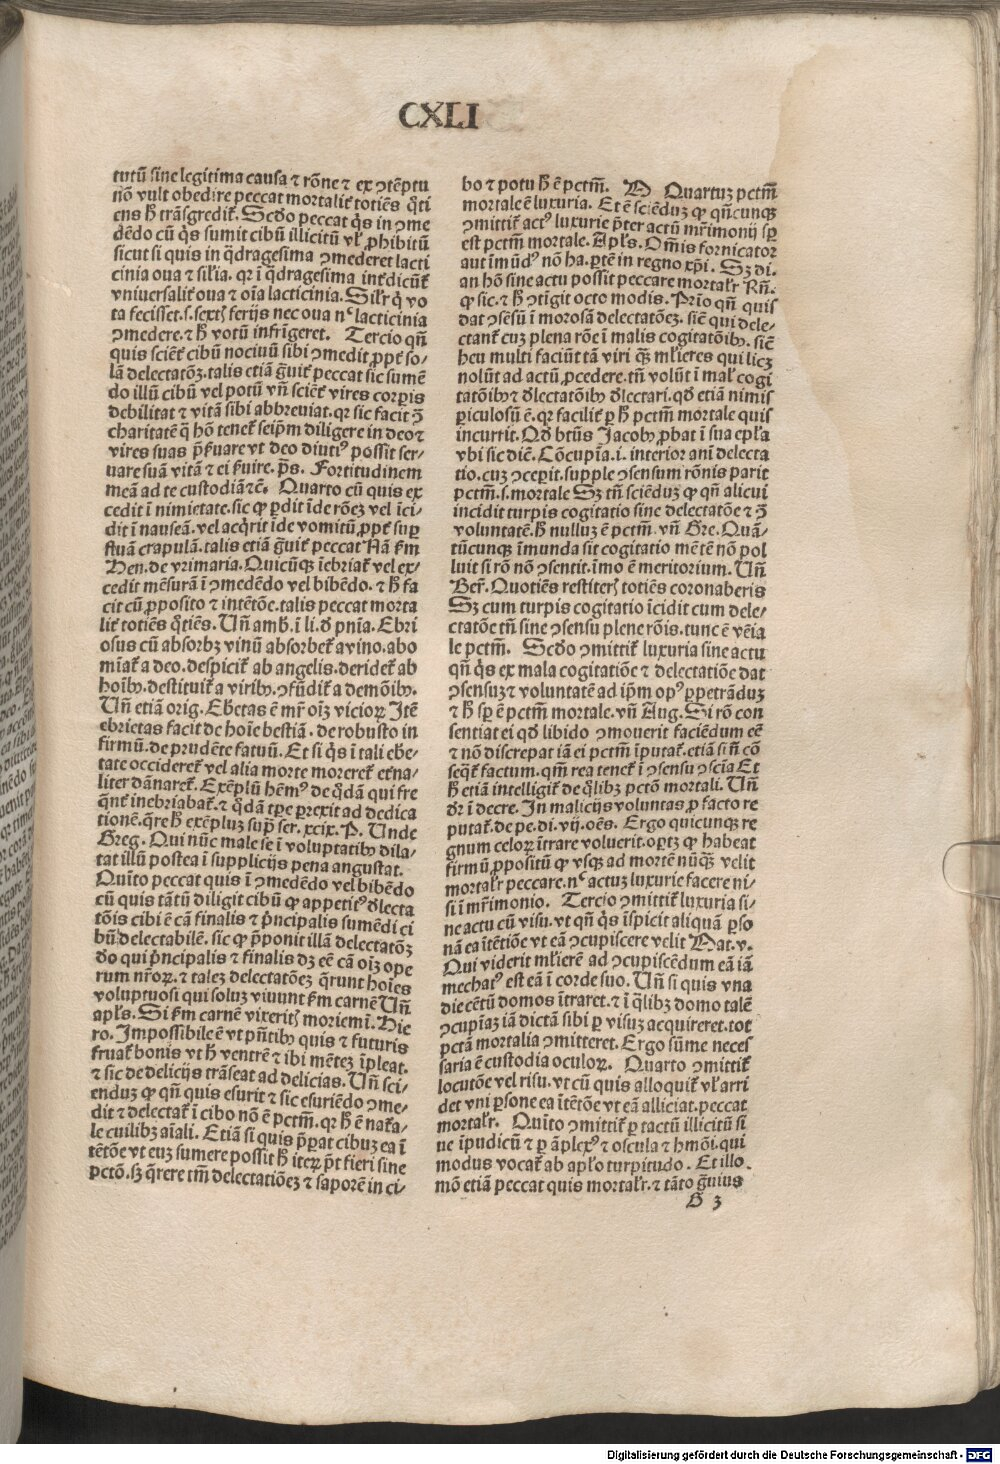 CXLI
tutū sine legitima causa ⁊ rōne ⁊ ex ɔtēptu
nō vult obedire peccat mortalit̄ totiēs q̄ti
ens h̄ trāsgredit̄. Scd̄o peccat q̄s in ɔme
dēdo cū q̄s sumit cibū illicitū vl̄ ꝓhibitū
sicut si quis in q̄dragesima ɔmederet lacti
cinia oua ⁊ sil̄ia. qr̄ ī q̄dragesima int̄dicūt̄
vniuersalit̄ oua ⁊ oīa lacticinia. Silr̄ q̄ vo
ta fecisset .s. sextꝭ ferijs nec oua nᶜ lacticinia
ɔmedere. ⁊ h̄ votū infrīgeret. Tercio qn̄
quis sciēt̄ cibū nociuū sibi ɔmedit ꝓpt̄ so/
lā delectatōꝫ. talis etiā ḡuit̄ peccat sic sumē
do illū cibū vel potū vn̄ sciēt̄ vires corꝑis
debilitat ⁊ vitā sibi abbreuiat. qr̄ sic facit ꝯ̄
charitatē q̄ hō tenet̄ seip̄m diligere in deo ⁊
vires suas p̄ẜuare vt deo diutiꝰ possit ser/
uare suā vitā ⁊ ei ẜuire. p̄s. Fortitudinem
meā ad te custodiā ⁊c̄. Quarto cū quis ex
cedit ī nimietate. sic ꝙ ꝑdit īde rōeꝫ vel īci/
dit ī nauseā. vel acq̄rit īde vomitū ꝓpt̄ suꝑ
fluā crapulā. talis etiā ḡuit̄ peccat Nā ẜm
Hen. de vrimaria. Quicūqꝫ īebriat̄ vel ex/
cedit mēsurā ī ɔmedēdo vel bibēdo. ⁊ h̄ fa
cit cū ꝓposito ⁊ intētōe. talis peccat morta
lit̄ totiēs q̄tiēs. Un̄ amb̄. ī li. d̄ pnīa. Ebri
osus cū absorbꝫ vinū absorbet̄ a vino. abo
mīat̄ a deo. despicit̄ ab angelis. deridet̄ ab
hoībꝰ. destituit̄ a viribꝰ. ɔfūdit̄ a demōibꝰ.
Un̄ etiā orig. Ebetas ē mr̄ oīꝫ vicioꝝ Itē
ebrietas facit de hoīe bestiā. de robusto in
firmū. de prudēte fatuū. Et si q̄s ī tali eb̄e/
tate occideret̄ vel alia morte moreret̄ et̄na/
liter dānaret̄. Exēplū hēmꝰ de q̄dā qui fre
q̄nt̄ inebriabat̄. ⁊ q̄dā tꝑe ꝑrexit ad dedica
tionē. q̄re h̄ exēpluꝫ sup̄ ser. xcix. P. Unde
Greg. Qui nūc male se ī voluptatibꝰ dila/
tat illū postea ī supplicijs pena angustat.
Quīto peccat quis ī ɔmedēdo vel bibēdo
cū quis tātū diligit cibū ꝙ appetitꝰ d̄lecta
tōis cibi ē cā finalis ⁊ p̄ncipalis sumēdi ci
bū delectabilē. sic ꝙ p̄ponit illā delectatōꝫ
d̄o qui p̄ncipalis ⁊ finalis dꝫ eē cā oīꝫ ope
rum nr̄oꝝ. ⁊ taleꝫ delectatōeꝫ q̄runt hoīes
voluptuosi qui soluꝫ viuunt ẜm carnē Un̄
apl̄s. Si ẜm carnē vixeritꝭ moriemī. Hie
ro. Impossibile ē vt pn̄tibꝰ quis ⁊ futuris
fruat̄ bonis vt h̄ ventrē ⁊ ibi mēteꝫ īpleat.
⁊ sic de delicijs trāseat ad delicias. Un̄ sci/
enduꝫ ꝙ qn̄ quis esurit ⁊ sic esuriēdo ɔme/
dit ⁊ delectat̄ ī cibo nō ē pctm̄. qr̄ h̄ ē nat̄a/
le cuilibꝫ aīali. Etiā si quis p̄parat cibuꝫ ea ī
tētōe vt euꝫ sumere possit h̄ iteꝝ p̄t fieri sine
pctō. sꝫ q̄rere tm̄ delectatiōeꝫ ⁊ saporē in ci/
bo ⁊ potu h̄ ē pctm̄. Quartuꝫ pctm̄
mortale ē luxuria. Et ē sciēduꝫ ꝙ qn̄cunqꝫ
ɔmittit̄ actꝰ luxurie p̄ter actū mr̄imonij sꝑ
est pctm̄ mortale. Apl̄s. Om̄is fornicator
aut īmūdꝰ nō ha. ꝑtē in regno xp̄i. Sꝫ di.
an hō sine actu possit peccare mortalr̄ Rn̄.
ꝙ sic. ⁊ h̄ ɔtīgit octo modis. Prīo qn̄ quis
dat ɔsēsū ī morosā delectatōeꝫ. siē qui dele/
ctant̄ cuꝫ plena rōe ī malis cogitatōibꝰ. siē
heu multi faciūt tā viri qꝫ ml̄ieres qui licꝫ
nolūt ad actū ꝓcedere. tn̄ volūt ī mal̄ cogi
tatōibꝰ ⁊ d̄lectatōibꝰ d̄lectari. qd̄ etiā nimis
ꝑiculosū ē. qr̄ facilit̄ ꝑ h̄ pctm̄ mortale quis
incurrit. Qd̄ btūs Jacobꝰ ꝓbat ī sua epl̄a
vbi sic diē. Cōcupīa .i. interior ani delecta
tio. cuꝫ ɔceꝑit. supple ɔsensum rōnis parit
pctm̄ .s. mortale Sꝫ tn̄ sciēduꝫ ꝙ qn̄ alicui
incidit turpis cogitatio sine delectatōe ⁊ ꝯ̄
voluntatē. h̄ nulluꝫ ē pctm̄. vn̄ Gre. Quā/
tūcunqꝫ īmunda sit cogitatio mētē nō pol
luit si rō nō ɔsentit. īmo ē meritorium. Un̄
Ber̄. Quotiēs restiterꝭ totiēs coronaberis
Sꝫ cum turpis cogitatio īcidit cum dele/
ctatōe tn̄ sine ɔsensu plene rōis. tunc ē vēia
le pctm̄. Scd̄o ɔmittit̄ luxuria sine actu
qn̄ q̄s ex mala cogitatiōe ⁊ delectatiōe dat
ɔsensuꝫ ⁊ voluntatē ad ip̄m opꝰ ꝑpetrāduꝫ
⁊ h̄ sꝑ ē pctm̄ mortale. vn̄ Aug. Si rō con
sentiat ei qd̄ libido ɔmouerit faciēdum eē
⁊ nō discrepat iā ei pctm̄ īputat̄. etiā si n̄ cō
seq̄t̄ factum. qm̄ rea tenet̄ ī ɔsensu ɔscīa Et
h̄ etiā intelligit̄ de q̄libꝫ pctō mortali. Un̄
dr̄ ī decre. In malicijs voluntas ꝓ facto re
putat̄. de pe. di. vij. oēs. Ergo quicunqꝫ re
gnum celoꝝ ītrare voluerit. optꝫ ꝙ habeat
firmū ꝓpositū ꝙ vsqꝫ ad mortē nūqꝫ velit
mortalr̄ peccare. nᶜ actuꝫ luxurie facere ni/
si ī mr̄imonio. Tercio ɔmittit̄ luxuria si/
ne actu cū visu. vt qn̄ q̄s īspicit aliquā ꝑso
nā ea ītētiōe vt eā ɔcupiscere velit Mat. v.
Qui viderit ml̄ierē ad ɔcupiscēdum eā iā
mechatꝰ est eā ī corde suo. Un̄ si quis vna
die cētū domos ītraret. ⁊ ī q̄libꝫ domo talē
ɔcupīaꝫ iā dictā sibi ꝑ visuꝫ acquireret. tot
pctā mortalia ɔmitteret. Ergo sūme neces
saria ē custodia oculoꝝ. Quarto ɔmittit̄
locutōe vel risu. vt cū quis alloquit̄ vl̄ arri
det vni ꝑsone ea ītētōe vt eā alliciat. peccat
mortalr̄. Quīto ɔmittit̄ ꝑ tactū illicitū si
ue īpudicū ⁊ ꝑ āplexꝰ ⁊ oscula ⁊ hmōi. qui
modus vocat̄ ab apl̄o turpitudo. Et illo
mō etiā peccat quis mortalr̄. ⁊ tāto ḡuius
3
Digitalisierung gefördert durch die Deutsche Forschungsgemeinschaft - DFG